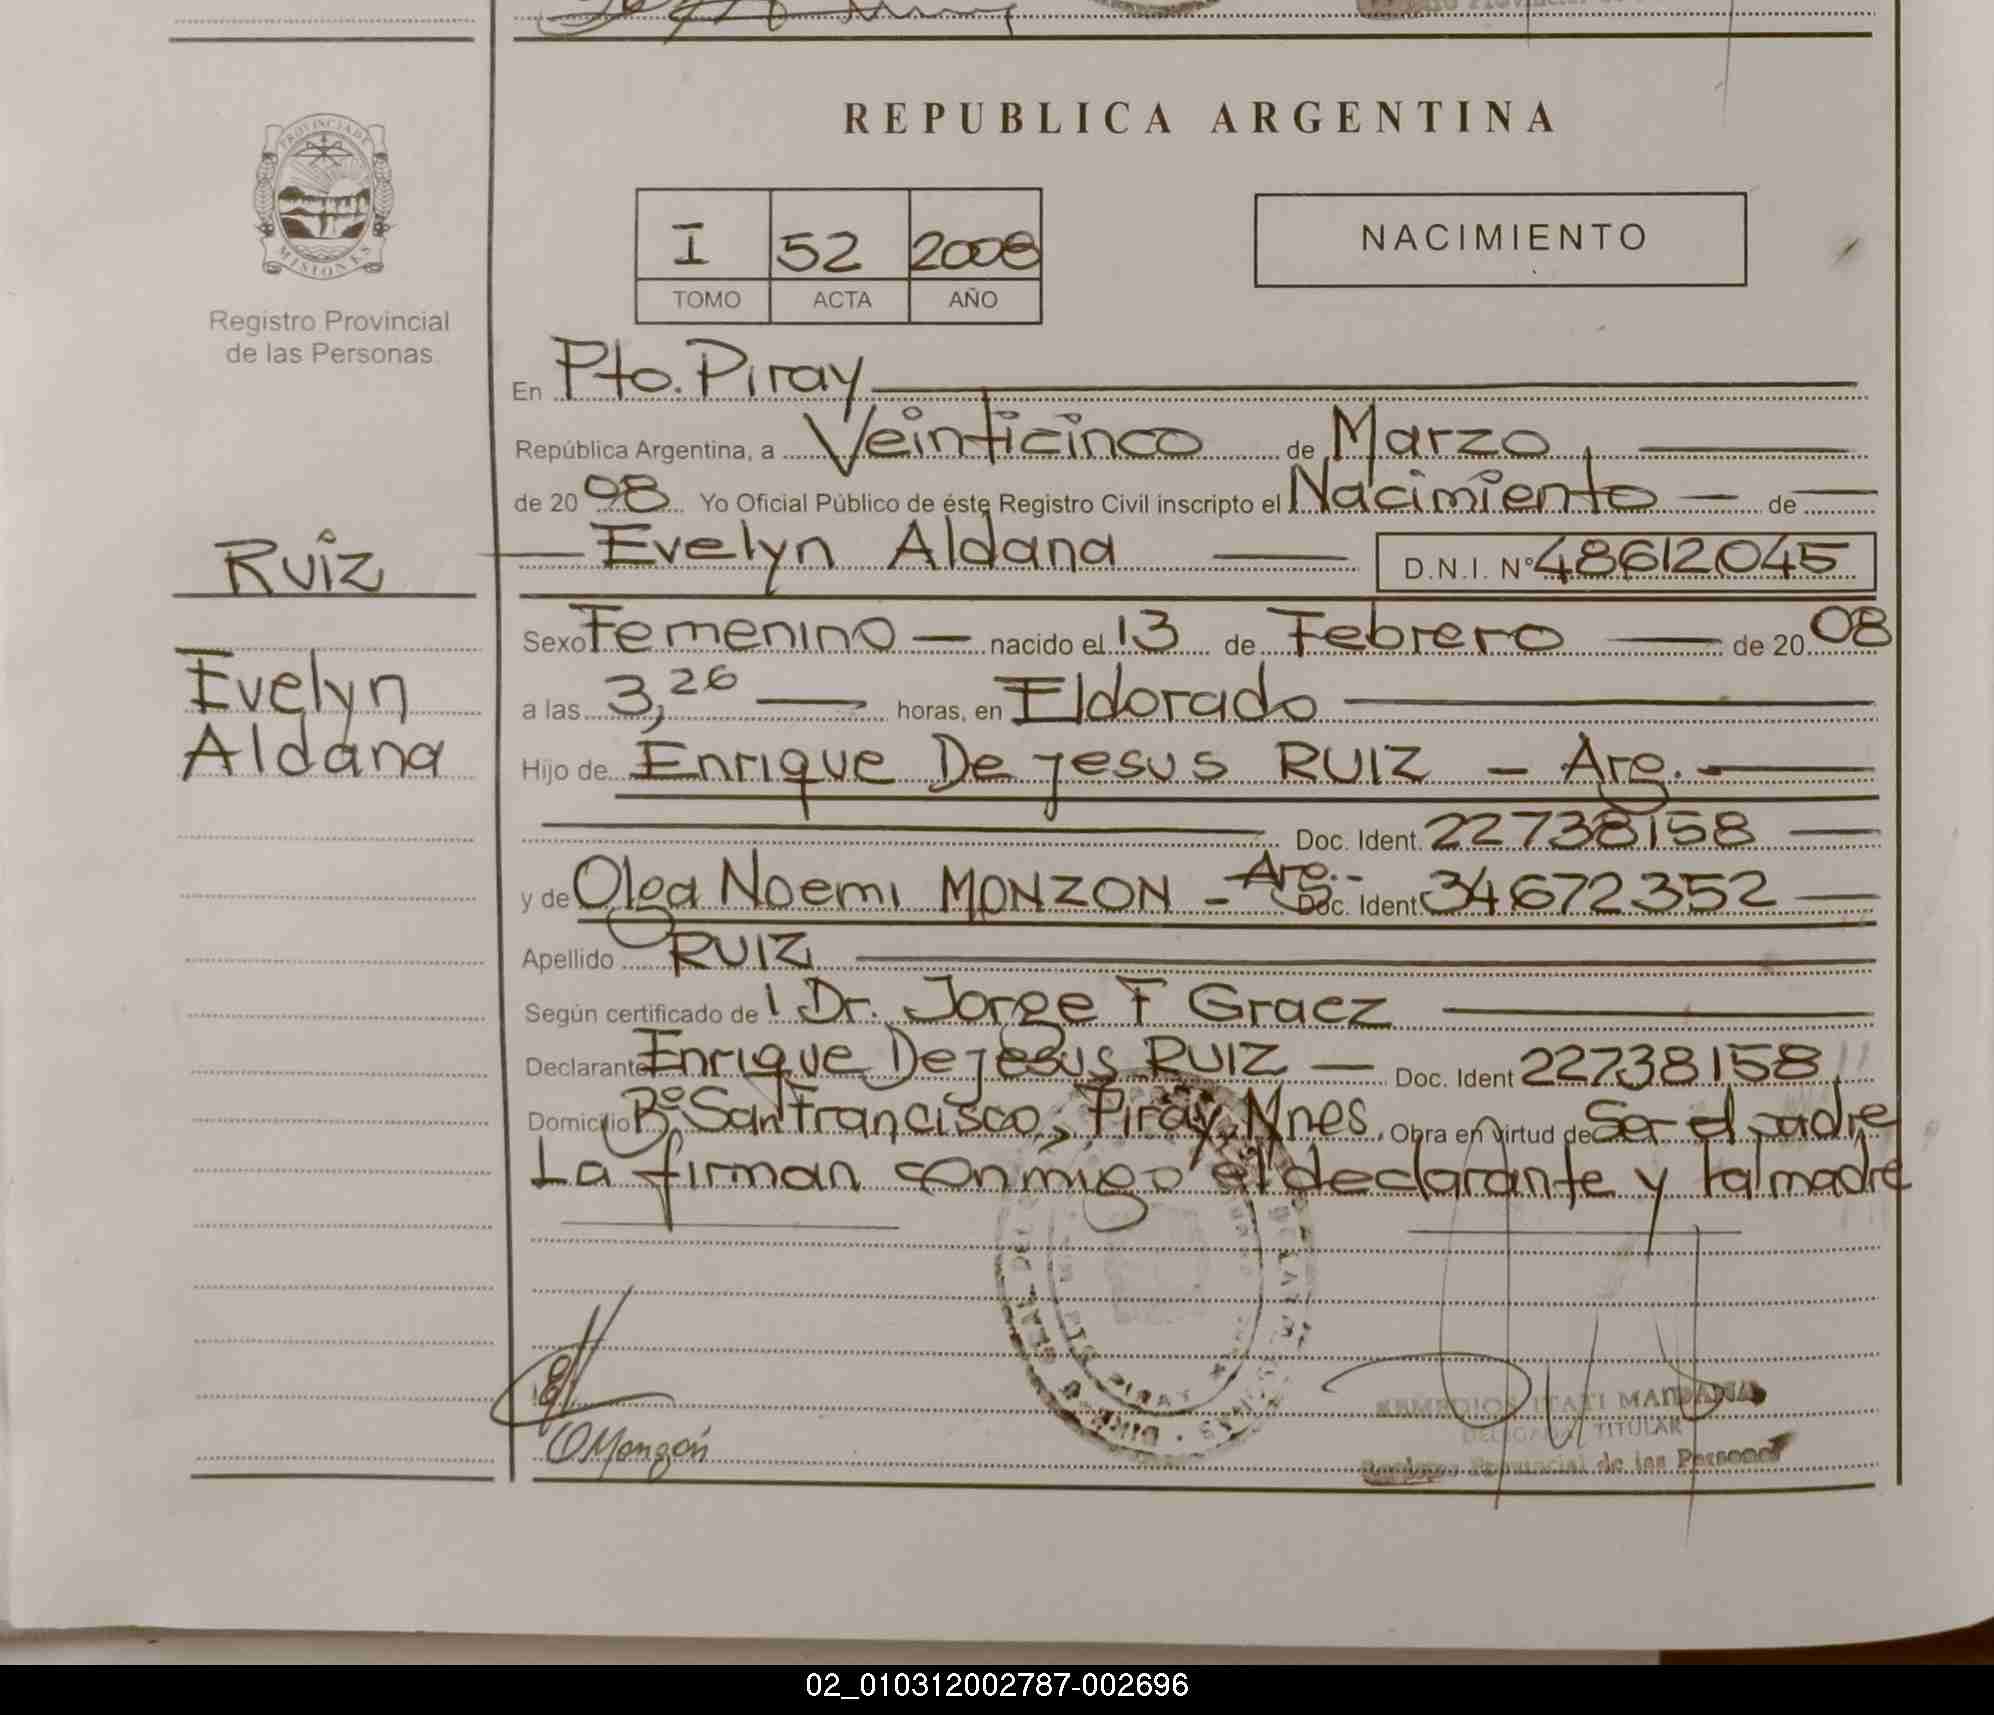 REPUBLICA ARGENTINA
PROVINCIA DE
MISIONES
Registro Provincial
de las Personas
I 52 2008
TOMO ACTA AÑO
NACIMIENTO
En Pto. Piray
República Argentina, a Veinticinco de Marzo
de 20 08 Yo Oficial Público de éste Registro Civil inscripto el Nacimiento de
Ruiz
Evelyn Aldana D.N.I. Nº 48612045
Evelyn
Aldana
Sexo Femenino nacido el 13 de Febrero de 20 08
a las 3,26 horas, en Eldorado
Hijo de Enrique De jesus RUIZ - Arg. -
Doc. Ident. 22738158
y de Olga Noemi MONZON - Arg. - Doc. Ident. 34672352
Apellido RUIZ
Según certificado de l Dr. Jorge F Graez
Declarante Enrique De jesus RUIZ Doc. Ident 22738158
Domicilio Bº San Francisco, Piray, Mnes. Obra en virtud de Ser el padre
La firman conmigo el declarante y la madre
PIRAY
OMonzón
REMEDIOS ITATI
TITULAR
Registro Provincial de las Personas
02_010312002787-002696